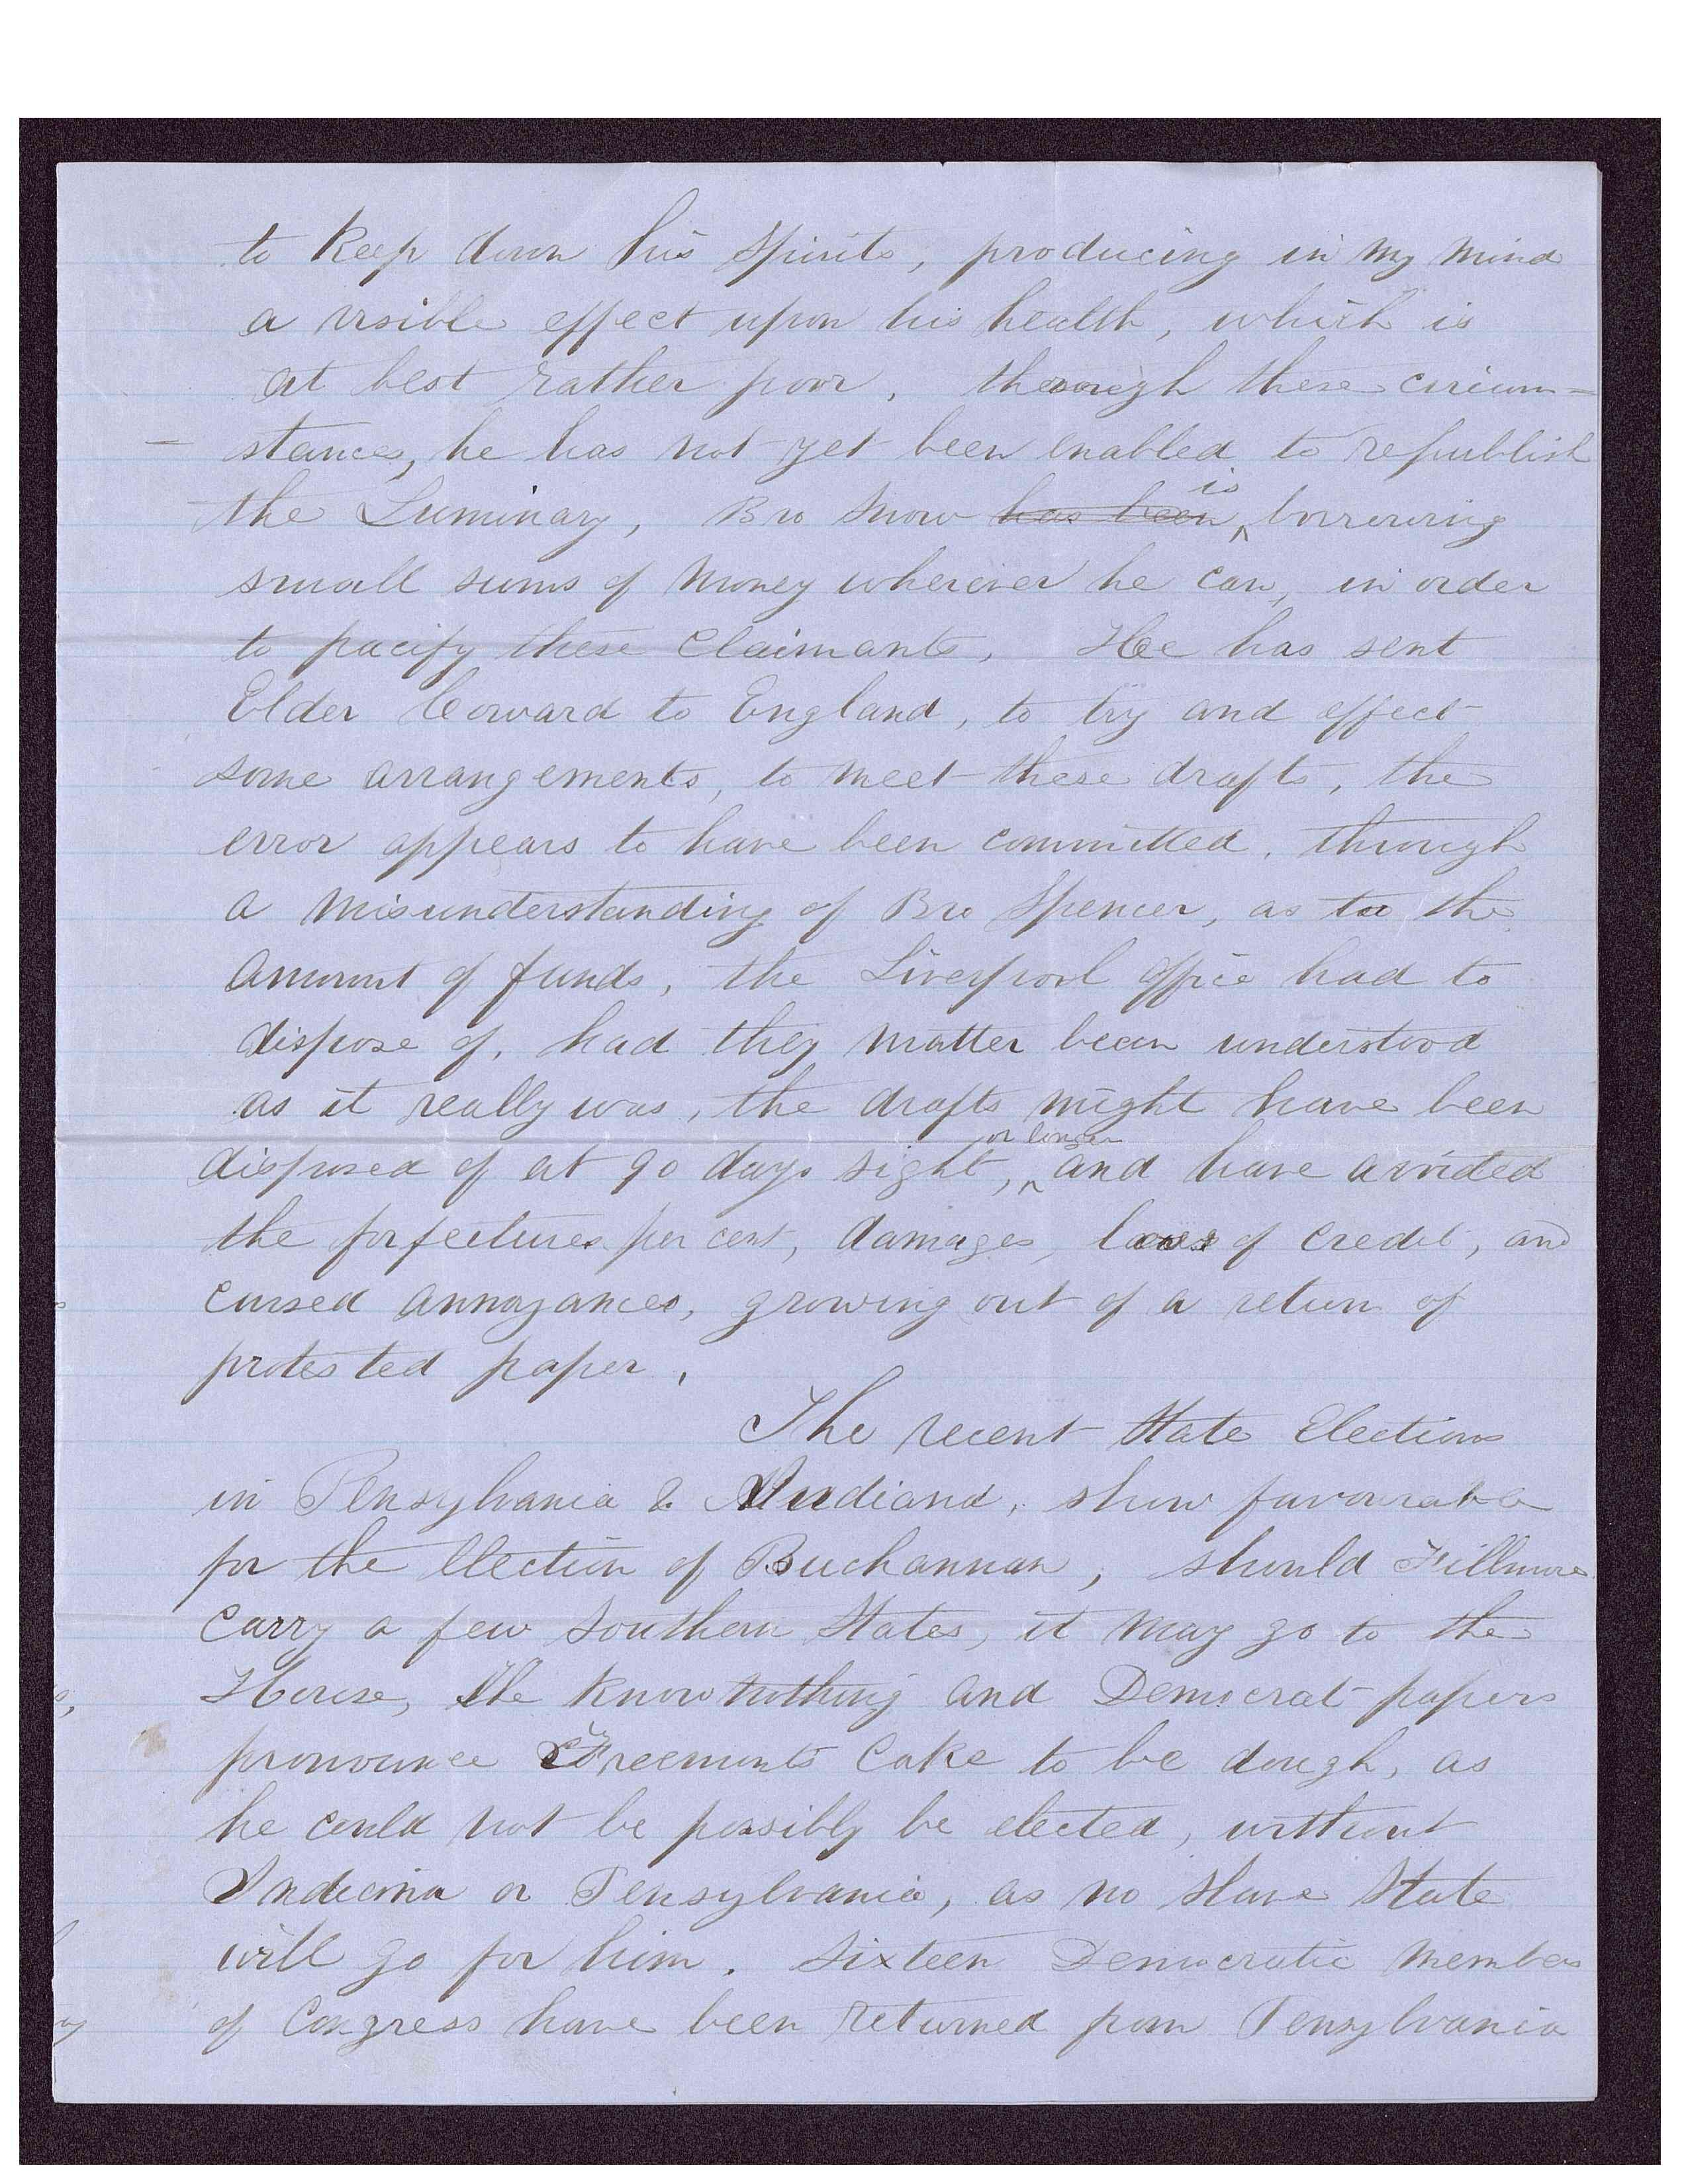 to keep down his spirits, producing in my mind
a visible effect upon his health, which is
at best rather poor, through these circum=
- stances, he has not yet been enabled to republish
the Luminary, Bro Snow has been is borrowing
small sums of money wherever he can, in order
to pacify these claimants, Hee has sent
Elder Coward to England, to try and effect
some arrangements, to meet these drafts, the
error appears to have been committed, through
a misunderstanding of Bro Spencer, as too the
amount of funds, the Liverpool office had to
dispose of, had they matter been understood
as it really was, the drafts might have been
disposed of at 90 days sight, or longer and have avoided
the forfeitures per cent, damages, loss of credit, and
cursed annoyances, growing out of a return of
protested paper,
The recent State Elections
in Pensylvania & Indiana, show favourable
for the Election of Buchannan, should Fillmore
carry a few Southern States, it may go to the
House, The Know Nothing and Democrat papers
pronounce Freemonts Cake to be dough, as
he could not be possibly be elected, without
Indiana or Pensylvania, as no Slave State
will go for him. Sixteen Democratic members
of Congress have been returned from Pensylvania